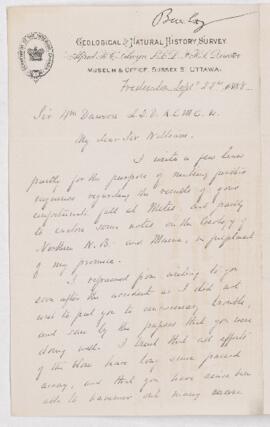 Bailey
GEOLOGICAL & NATURAL HISTORY SURVEY.
Alfred R. C. Selwyn L.L.D. F.R.S. Director
MUSEUM & OFFICE, SUSSEX St OTTAWA.
Fredericton Sept 25th 1888
Sir Wm Dawson L.L.D. K.C.M.G. &c
My dear Sir William.
I write a few lines
partly for the purpose of making further
enquiries regarding the results of your
unfortunate fall at Metis and partly
to enclose some notes on the Geology of
Northern N.B. and Maine, in fulfilment
of my promise.
I refrained from writing to you
soon after the accident as I did not
wish to put you to unnecessary trouble,
and saw by the papers that you were
doing well. I trust that all effects
of the blow have long since passed
away, and that you have since been
able to hammer out many more